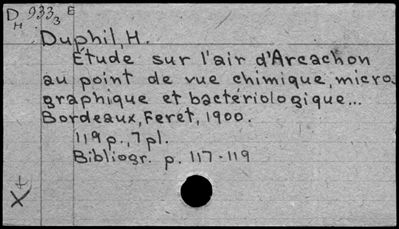 D 933 E
H 3
Duphil, H.
Etude sur l'air d'Arcachon
au point de vue chimique, micro
graphique et bactériologique...
Bordeaux, Feret, 1900.
119 p., 7 pl.
Bibliogr. p. 117-119